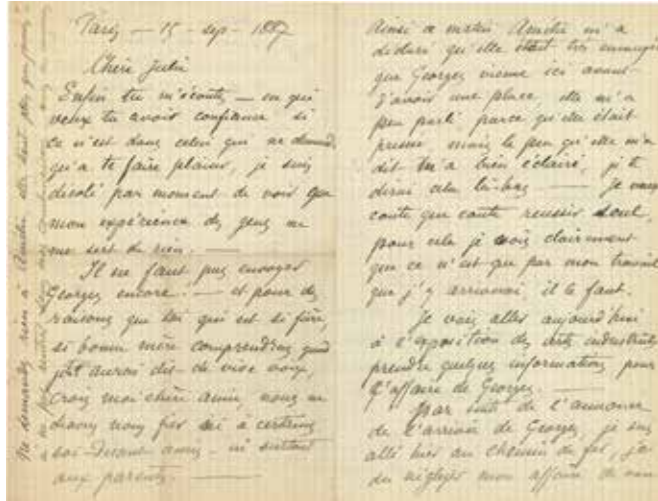 Paris — 15 - sep - 1887
Chère Julie
Enfin tu m'écoute, — en qui
veux tu avoir confiance si
ce n'est dans celui qui ne demande
qu'a te faire plaisir, je suis
désolé par moment de voir que
mon expérience des gens ne
me sert de rien. —
Il ne faut pas envoyer
Georges encore. — et pour des
raisons que toi qui est si fière,
si bonne mère comprendras quand
je t'aurai dit de vive voix,
crois moi chère amie, nous ne
devons nous fier ni à certains
soi-disant amis - ni surtout
aux parents. —
Ne demandez rien à Amélie elle
Ainsi ce matin Amélie m'a
déclaré qu'elle était très ennuyée
que Georges vienne ici avant
d'avoir une place, elle m'a
peu parlé parce qu'elle était
pressée mais le peu qu'elle m'a
dit m'a bien éclairé, je te
dirai cela — Je veux
coute que coute reussir seul,
pour cela je vois clairement
que ce n'est que par mon travail
que j'y arriverai, il le faut.
Je vais aller aujourd'hui
à l'exposition des arts industriels
prendre quelques informations pour
l'affaire de Georges. —
Par suite de l'annonce
de l'arrivée de Georges, je suis
allé hier au chemin de fer, j'ai
du négliger mon affaire de